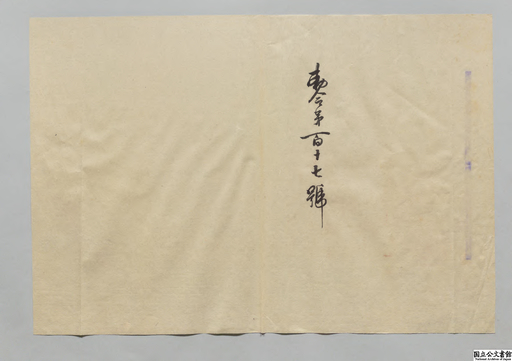 勅令第百十七號
国立公文書館
National Archives of Japan